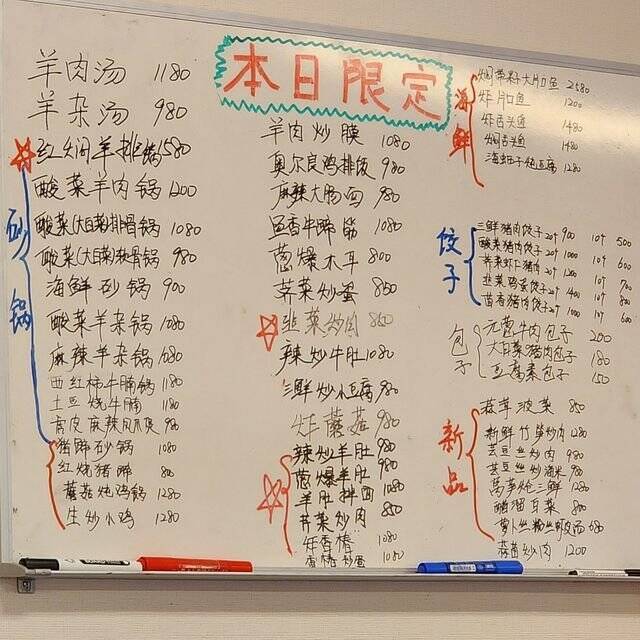 本日限定
羊肉汤 1180
羊杂汤 980
红焖羊排锅 1580
酸菜羊肉锅 1200
酸菜(大白菜)排骨锅 1080
酸菜(大白菜)软骨锅 980
海鲜砂锅 900
酸菜羊杂锅 1080
麻辣羊杂锅 1080
西红柿牛腩锅 1180
土豆烧牛腩 1180
腐皮麻辣凤爪煲 980
猪蹄砂锅 1080
红烧猪蹄 800
蘑菇炖鸡锅 1280
生炒小鸡 1280
砂锅
羊肉炒膜 1080
奥尔良鸡排饭 980
麻辣大肠面 980
鱼香牛蹄筋 1080
葱爆木耳 800
荠菜炒蛋 850
韭菜炒肉 850
辣炒牛肚 1080
三鲜炒小豆腐 980
炸蘑菇 980
辣炒羊肚 980
葱爆羊肚 980
羊肚拌面 1080
芹菜炒肉 850
炸香椿 1080
香椿炒蛋 1080
海鲜
焖带籽大片口鱼 2580
炸片口鱼 1200
炸舌头鱼 1480
焖舌头鱼 1480
海蛎子炖豆腐 1280
饺子
三鲜猪肉饺子 20个 900 10个 500
酸菜猪肉饺子 20个 1000 10个 600
荠菜虾仁猪肉 20个 1200 10个 700
韭菜鸡蛋饺子 20个 1400 10个 800
茴香猪肉饺子 20个 1000 10个 600
包子
元葱牛肉包子 200
大白菜猪肉包子 180
豆腐素包子 150
新品
菠菜 850
新鲜竹笋炒肉 1280
芸豆丝炒肉 980
芸豆丝炒海米 980
莴笋炝三鲜 1280
醋溜白菜 800
萝卜丝粉丝虾皮汤 680
蒜苗炒肉 1200